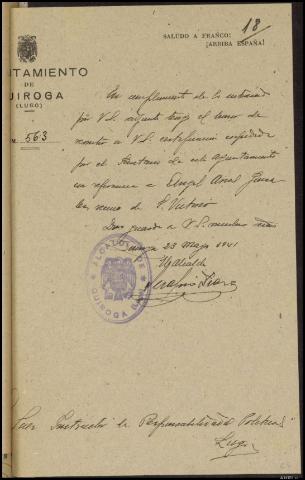 18
SALUDO A FRANCO:
¡ARRIBA ESPAÑA!
UNTAMIENTO
DE
UIROGA
(LUGO)
M. 563
En cumplimiento de lo interesado
por V.S. adjunto tengo el honor de
remitir a V.S. certificación expedida
por el Secretario de este Ayuntamiento
con referencia a Angel
vecino de S. Victorio
Dios guarde a V.S. muchos años
Quiroga 23 Mayo 1941
El Alcalde
ALCALDIA DE
QUIROGA
Sr. Juez Instructor de Responsabilidades Políticas
Lugo